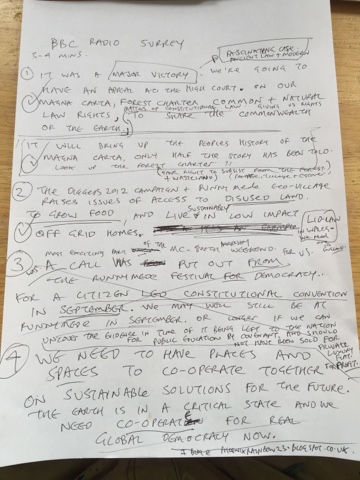 BBC RADIO SURREY
3-4 MINS.
FASCINATING CASE
ANCIENT LAW + MODERN
① IT WAS A MAJOR VICTORY WE'RE GOING TO
HAVE AN APPEAL AT THE HIGH COURT. ON OUR
MAGNA CARTA, FOREST CHARTER COMMON + NATURAL
MATTER OF CONSTITUTIONAL LAW RIGHTS
LAW RIGHTS, TO SHARE THE COMMONWEALTH
OF THE EARTH.
IT WILL BRING UP THE PEOPLES HISTORY OF THE
MAGNA CARTA, ONLY HALF THE STORY HAS BEEN TOLD.
LOOK UP THE FOREST CHARTER!
OUR RIGHT TO SUBSIST FROM THE FOREST
+ WASTELAND
② THE DIGGERS 2012 CAMPAIGN + RUNNYMEDE ECO-VILLAGE
RAISES ISSUES OF ACCESS TO DISUSED LAND.
SUSTAINABLE
TO GROW FOOD, AND LIVE IN LOW IMPACT
OFF GRID HOMES.
LID-LAW
IN WALES
MOST EXCITING PART OF THE MC-800TH WEEKEND. FOR US.
③ A CALL WAS PUT OUT FROM
THE RUNNYMEDE FESTIVAL FOR DEMOCRACY.
FOR A CITIZEN LED CONSTITUTIONAL CONVENTION
IN SEPTEMBER. WE MAY WELL STILL BE AT
RUNNYMEDE IN SEPTEMBER. OR LONGER IF WE CAN
UNCOVER THE EVIDENCE IN TIME OF IT BEING LEFT TO THE NATION
FOR PUBLIC EDUCATION BY COVENANT AND SHOULD
NOT HAVE BEEN SOLD FOR
PRIVATE
LUXURY
FLATS
FOR PROFIT
④ WE NEED TO HAVE PLACES AND
SPACES TO CO-OPERATE TOGETHER
ON SUSTAINABLE SOLUTIONS FOR THE FUTURE.
THE EARTH IS IN A CRITICAL STATE AND WE
NEED CO-OPERATE FOR REAL
GLOBAL DEMOCRACY NOW.
PHOENIXRAINBOW23.BLOGSPOT.CO.UK